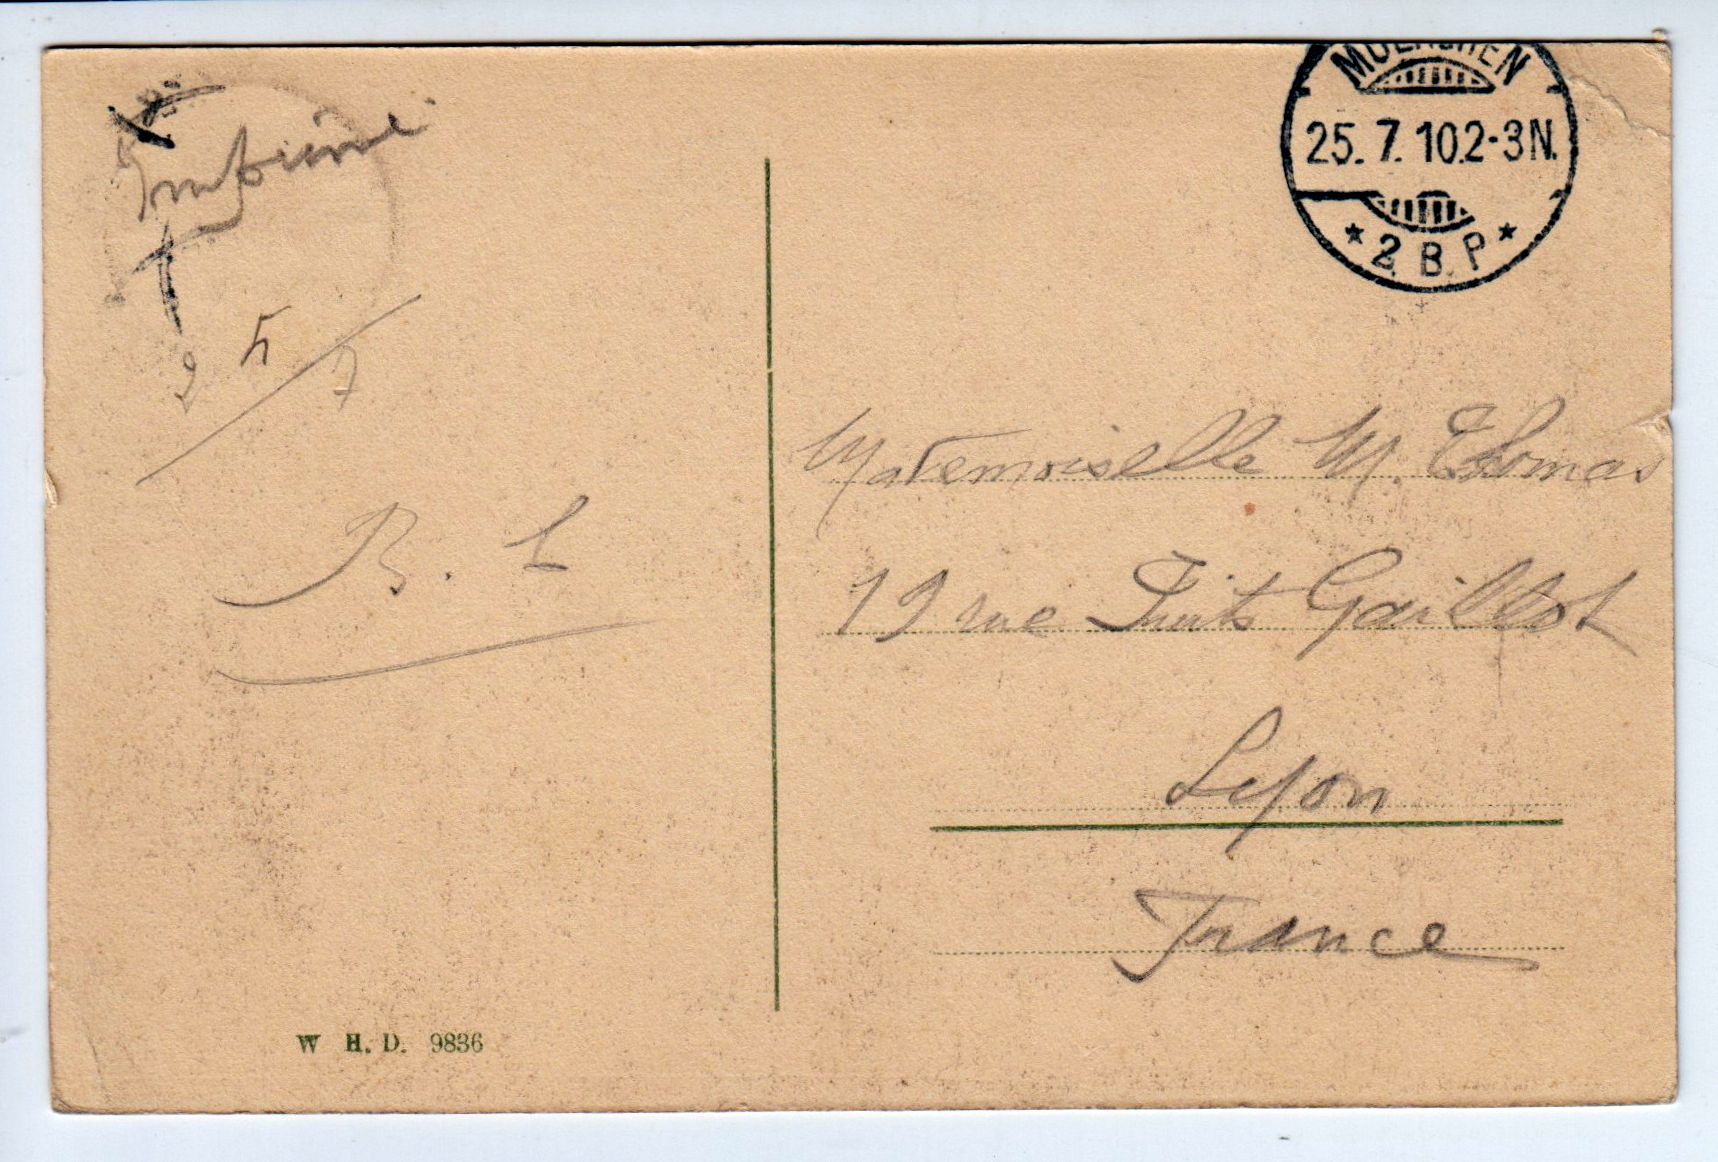 MUENCHEN
25. 7. 10. 2-3 N.
* 2 B. P *
Imprimé
25/7
B. L
Mademoiselle M. Thomas
19 rue Puits Gaillot
Lyon
France
W. H. D. 9836